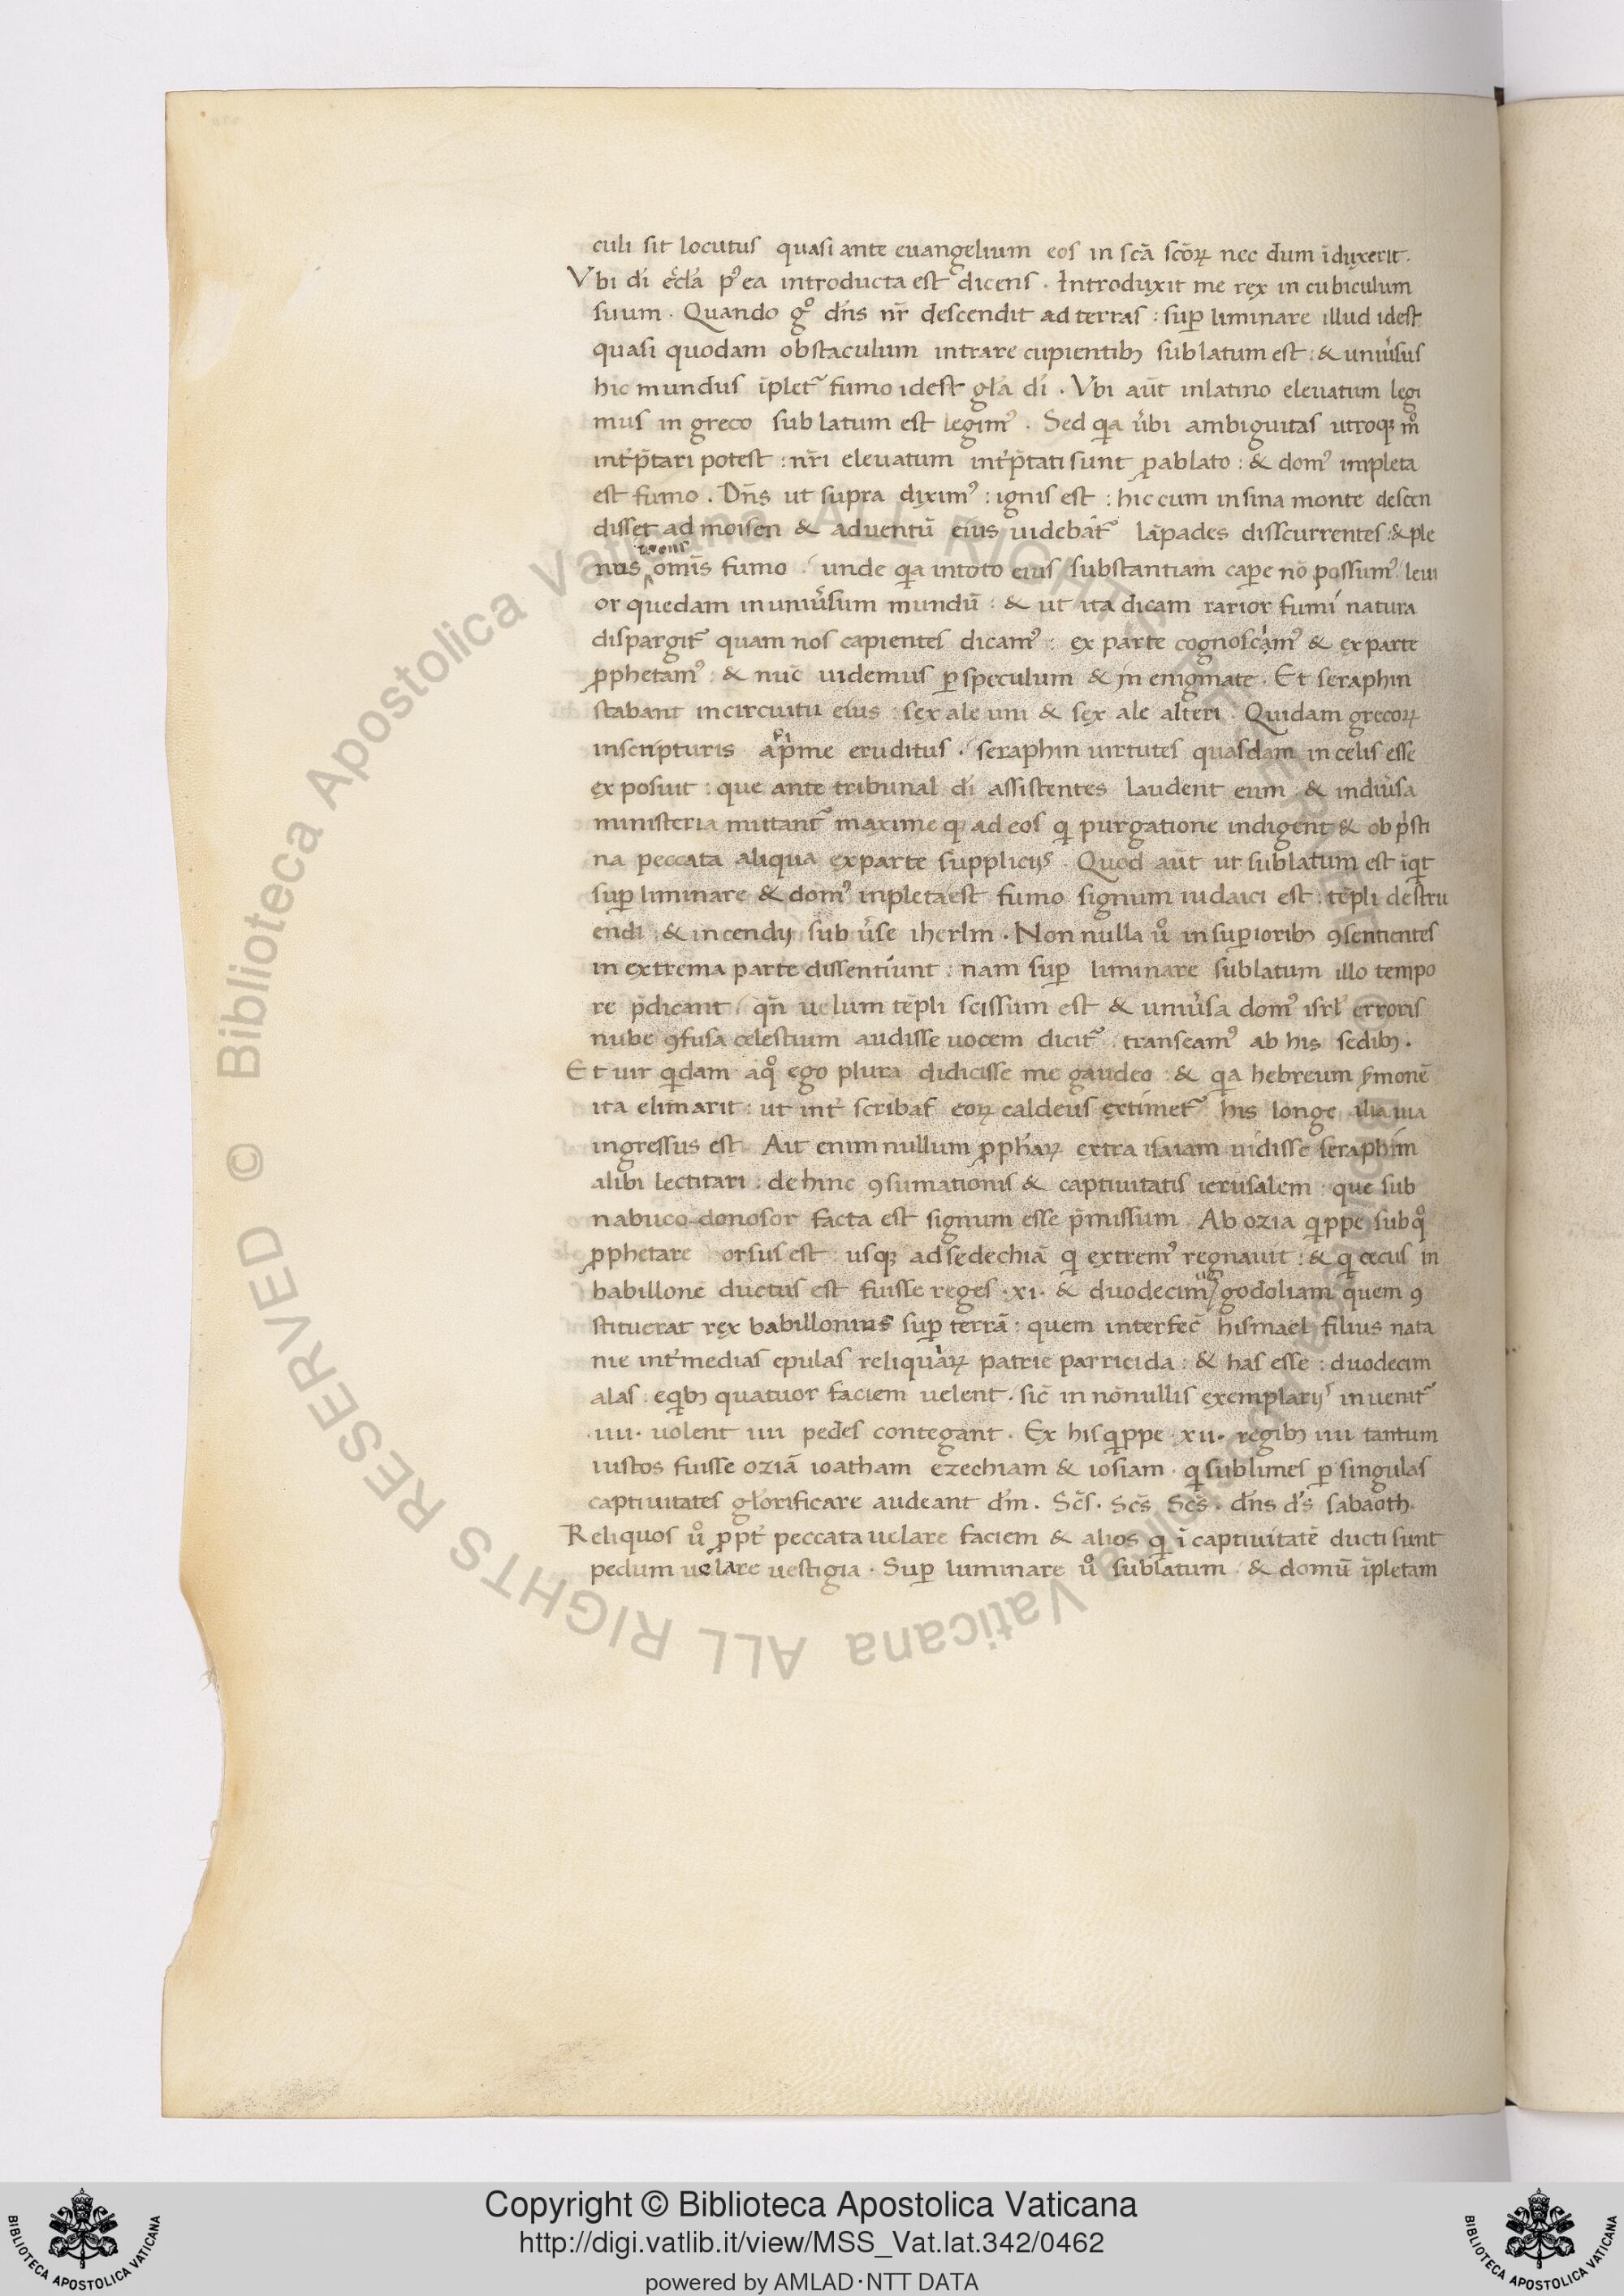 culi sit locutus quasi ante euangelium eos in scā scōꝝ nec dum īduxerit.
Vbi dı́ eccła pꝰ ea introducta est dicens . Introduxit me rex in cubiculum
suum . Quando gͦ dn̄s nr̄ descendit ad terras : suꝑ liminare illud idest
quasi quodam obstaculum intrare cupientibꝫ sublatum est : & uniũsus
hic mundus īpletᷣ fumo idest gła dı́ . Vbi aūt inlatino eleuatum legi
mus in greco sublatum est legimꝰ . Sed qia ũbi ambiguitas utroqꝫ mͦ
int̃p̄tari potest : nr̄i eleuatum int̃p̄tati sunt ꝓ ablato : & domꝰ impleta
est fumo . Dn̄s ut supra diximꝰ : ignis est : hic cum in sina monte descen
disset ad moisen & aduentū eius uidebãtᷣ lāpades disscurrentes : & ple
nus mons omīs fumo . unde qia intoto eius substantiam caꝑe nō possumꝰ leui
or quedam in uniũsum mundū : & ut ita dicam rarior fumi natura
dispargitᷣ quam nos capientes dicamꝰ : ex parte cognoscimꝰ & ex parte
ꝓphetamꝰ : & nūc uidemus ꝑ speculum & in enigmate . Et seraphin
stabant incircuitu eius : sex ale uni & sex ale alteri . Quidam grecoꝝ
inscripturis apprime eruditus . seraphin uirtutes quasdam in celis esse
exposuit : que ante tribunal dı́ assistentes laudent eum : & indiũsa
ministeria mittantᷣ maxime qꝫ ad eos qi purgatione indigent & ob pisti
na peccata aliqua exparte supplicijs . Quod aūt ut sublatum est īqit
suꝑ liminare & domꝰ inpleta est fumo signum iudaici est : tēpli destru
endi : & incendij sub ũse iherlm . Non nulla uͦ in suꝑioribꝫ ꝯsentientes
in extrema parte dissentiunt : nam suꝑ liminare sublatum illo tempo
re p̄dicant qn̄ uelum tēpli scissum est & uniũsa domꝰ isrl erroris
nube ꝯfusa celestium audisse uocem dicitᷣ transeamꝰ ab his sedibꝫ .
Et uir qidam aqͦ ego plura didicisse me gaudeo : & qia hebreum s̃monē
ita elimarit : ut int̃ scribas eoꝝ caldeus extimetᷣ his longe alia uia
ingressus est . Ait enim nullum ꝓphaꝝ extra isaiam uidisse seraphim
alibi lectitari : dehinc ꝯsumationis & captiuitatis ierusalem que sub
nabuco donosor facta est signum esse p̄missum . Ab ozia qippe subqͦ
ꝓphetare orsus est usqꝫ ad sedechiā qi extremꝰ regnauit : & qi cecus in
babillone ductus est fuisse reges . xi . & duodecimū godoliam quem ꝯ
stituerat rex babillonius suꝑ terrā : quem interfec̄ hismael filius nata
nie int̃ medias epulas reliquiaꝝ patrie parricida : & has esse : duodecim
alas : eqibꝫ quatuor faciem uelent . sic̄ in nōnullis exemplarijs inuenitᷣ
. iiii . uolent iiii pedes contegant . Ex his qippe . xii . regibꝫ iiii tantum
iustos fuisse oziā ioatham ezechiam & iosiam . qi sublimes ꝑ singulas
captiuitates glorificare audeant dm̄ . Sc̄s . Sc̄s Sc̄s . dn̄s ds̄ sabaoth .
Reliquos uͦ ꝓpt̃ peccata uelare faciem & alios qi ī captiuitatē ducti sunt
pedum uelare uestigia . Suꝑ luminare uͦ sublatum & domū īpletam
© Biblioteca Apostolica Vaticana ALL RIGHTS RESERVED
Copyright © Biblioteca Apostolica Vaticana
http://digi.vatlib.it/view/MSS_Vat.lat.342/0462
powered by AMLAD·NTT DATA
BIBLIOTECA APOSTOLICA VATICANA
BIBLIOTECA APOSTOLICA VATICANA